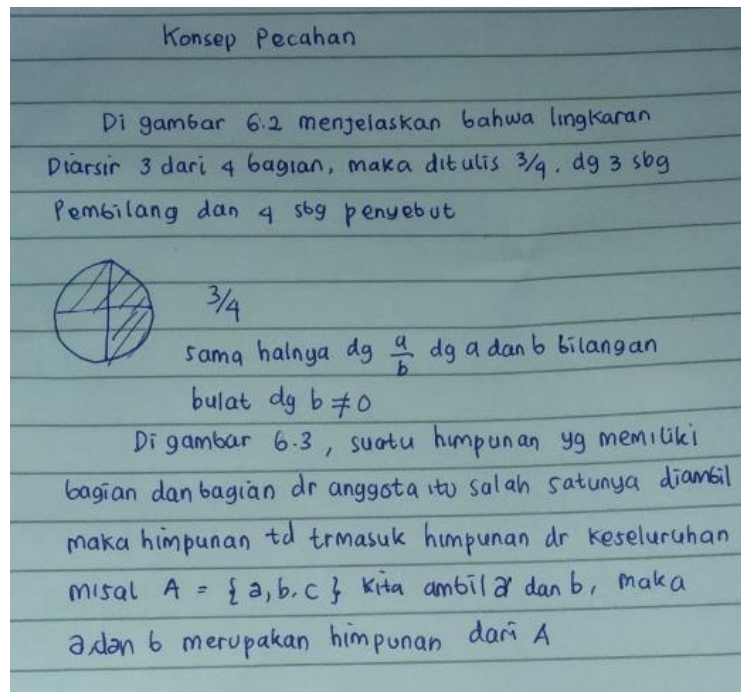 Konsep Pecahan
Di gambar 6.2 menjelaskan bahwa lingkaran
Diarsir 3 dari 4 bagian, maka ditulis 3/4. dg 3 sbg
Pembilang dan 4 sbg penyebut
3/4
sama halnya dg a/b dg a dan b bilangan
bulat dg b ≠ 0
Di gambar 6.3, suatu himpunan yg memiliki
bagian dan bagian dr anggota itu salah satunya diambil
maka himpunan td trmasuk himpunan dr keseluruhan
misal A = { a, b, c } kita ambil a dan b, maka
a dan b merupakan himpunan dari A